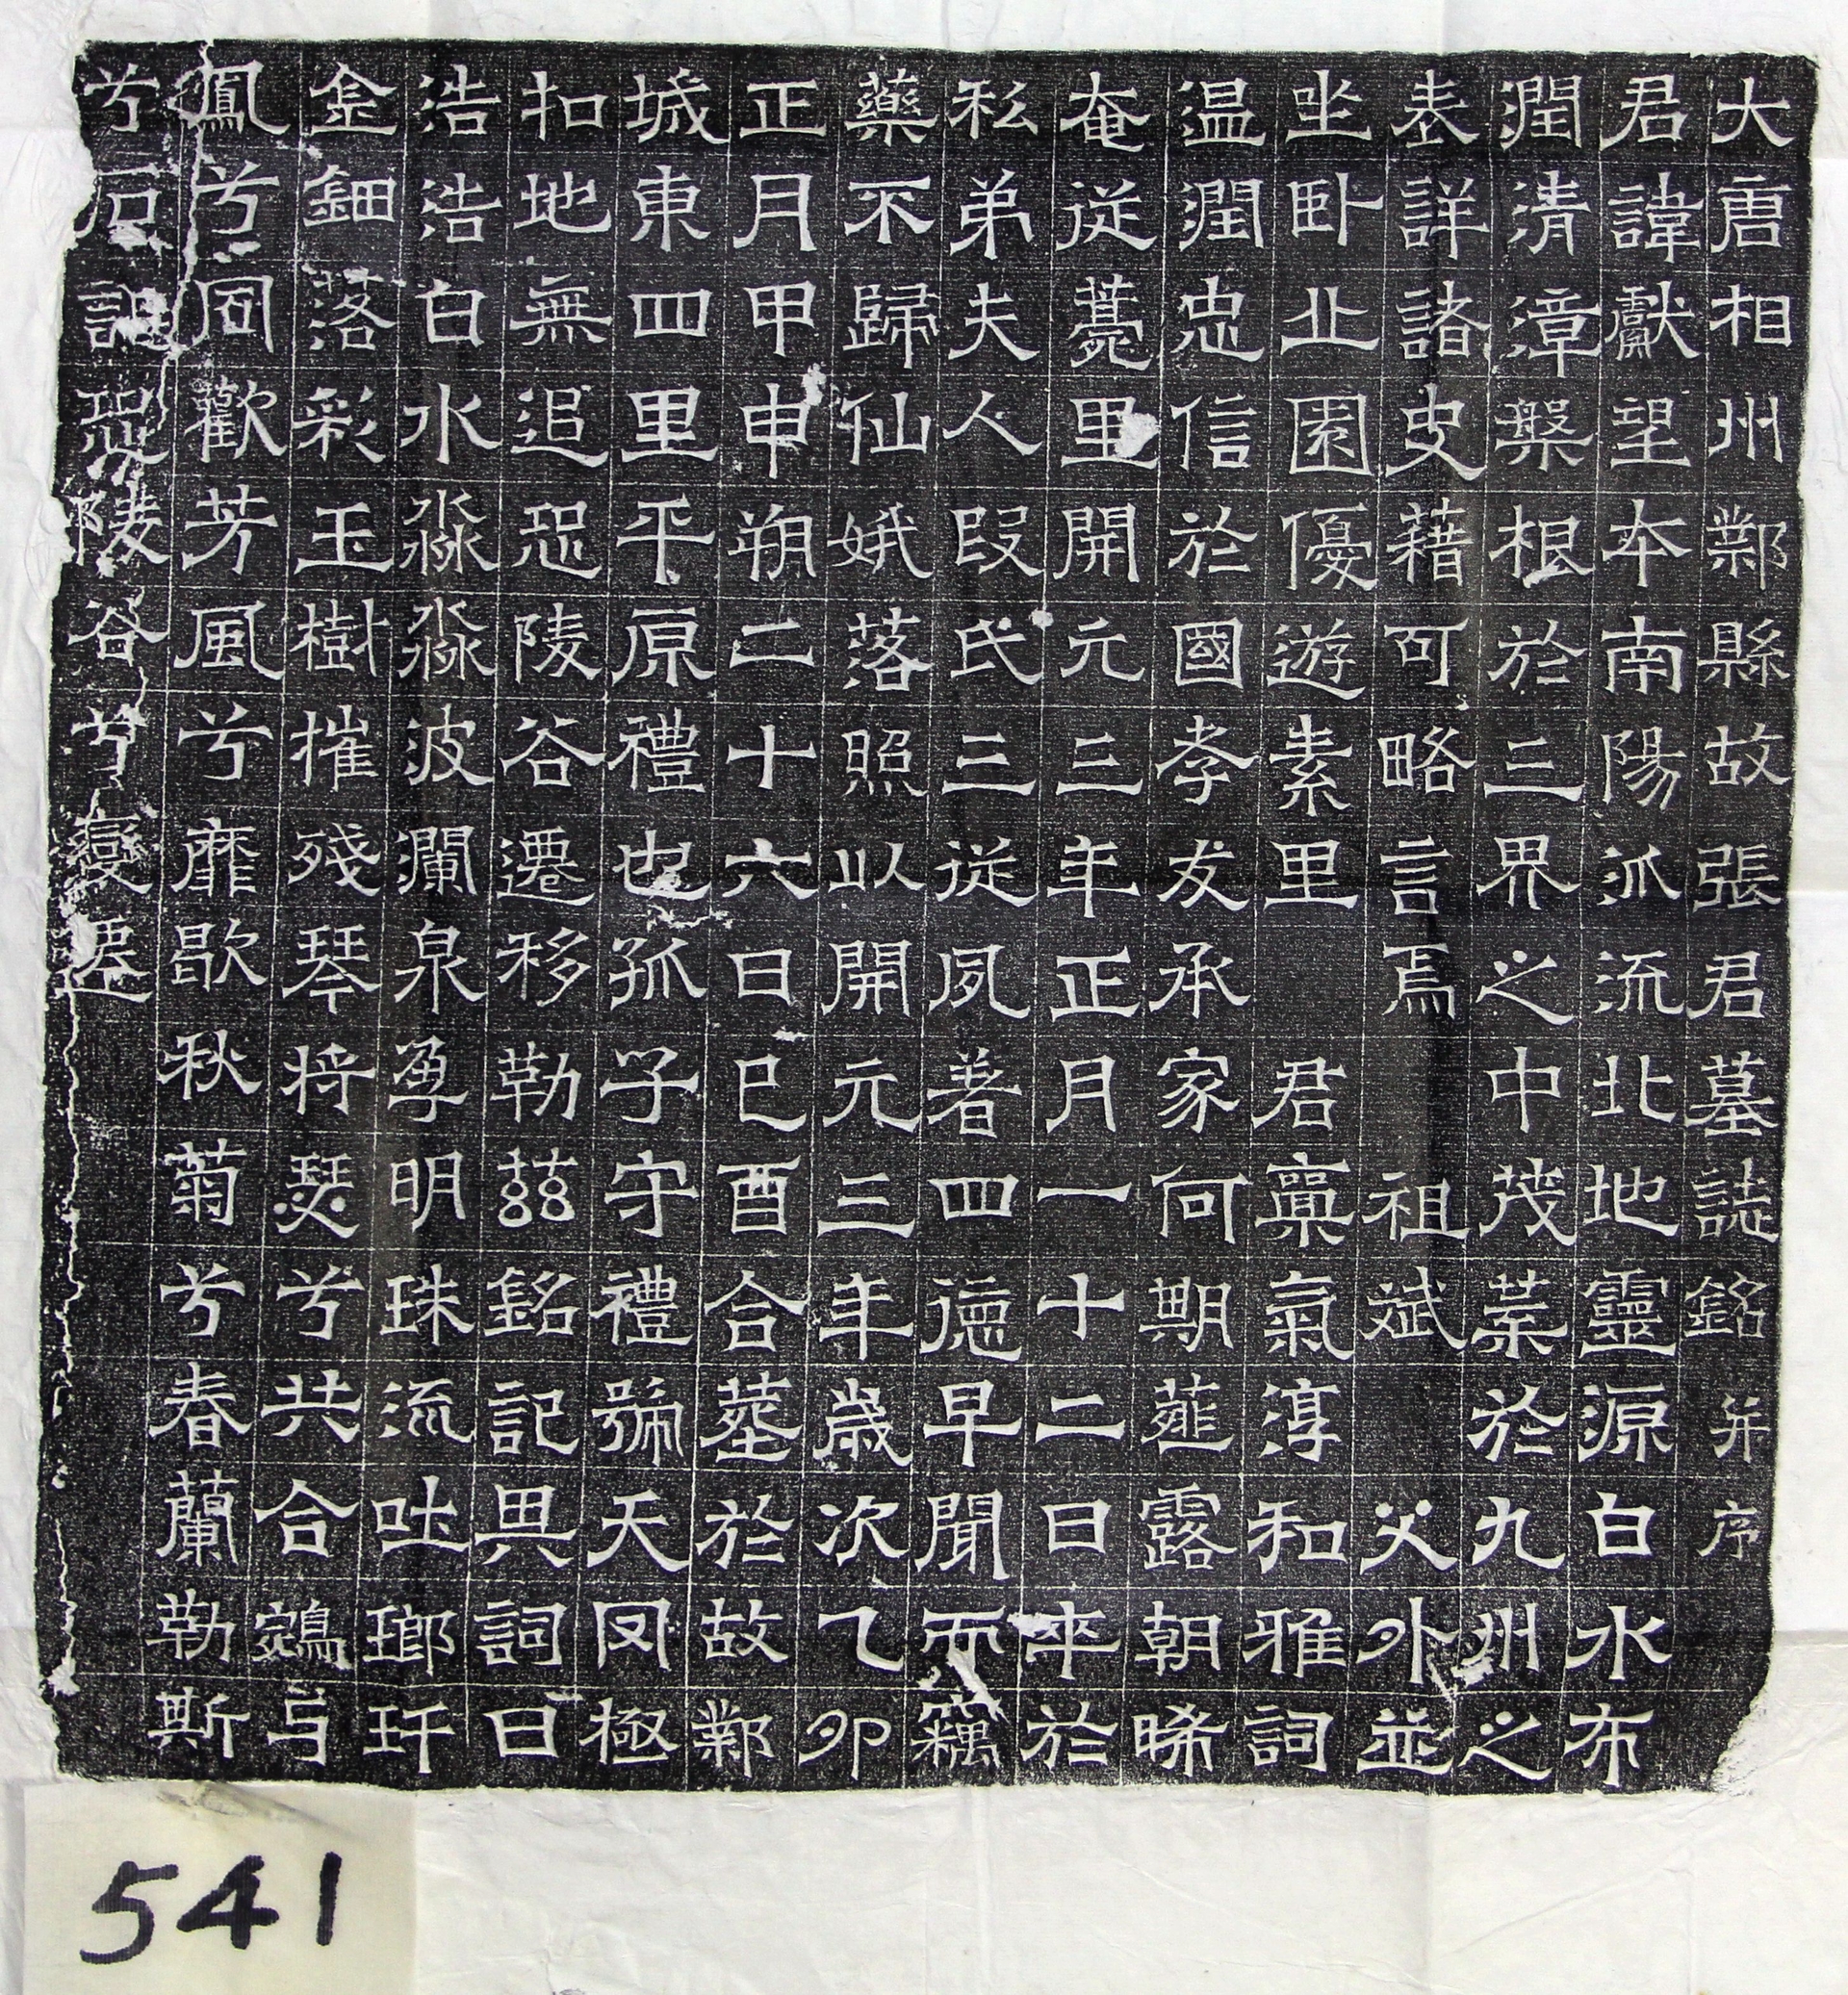 大唐相州鄴縣故張君墓誌銘并序
君諱獻望本南陽派流北地靈源白水布
潤清漳槃根於三界之中茂葉於九州之
表詳諸史藉可略言焉祖斌父外並
坐卧丘園優遊素里君稟氣淳和雅詞
温潤忠信於國孝友承家何期薤露朝晞
奄從薨里開元三年正月一十二日卒於
私弟夫人段氏三從夙著四德早聞而竊
藥不歸仙娥落照以開元三年歲次乙卯
正月甲申朔二十六日己酉合塟於故鄴
城東四里平原禮也孤子守禮號天罔極
扣地無追恐陵谷遷移勒兹銘記其詞曰
浩浩白水淼淼波瀾泉孕明珠流吐瑯玕
金鈿落彩玉樹摧殘琴將瑟兮共合鴛与
鳳兮同歡芳風兮靡歇秋菊兮春蘭勒斯
兮石記恐陵谷兮變遷
541